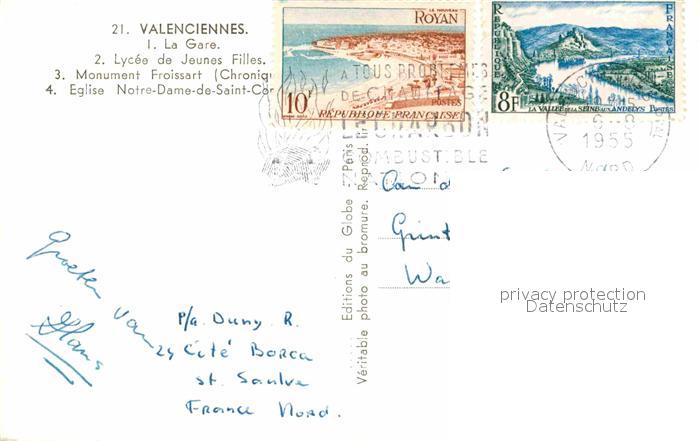 21. VALENCIENNES.
1. La Gare.
2. Lycée de Jeunes Filles.
3. Monument Froissart (Chroniq
4. Eglise Notre-Dame-de-Saint-Cor
LE NOUVEAU
ROYAN
10F
POSTES
REPUBLIQUE FRANÇAISE
REPUBLIQUE FRANÇAISE
8F
LA VALLEE DE LA SEINE AUX ANDELYS POSTES
A TOUS PROBLEMES
DE CHAUFFAGE
LE CHARBON
COMBUSTIBLE
1955
NORD
Editions du Globe - Paris
Véritable photo au bromure. Reprod.
Grint
Wa
Groeten van
Hans
P/a. Duny R.
24 Cité Borca
St. Saulve
France Nord.
privacy protection
Datenschutz